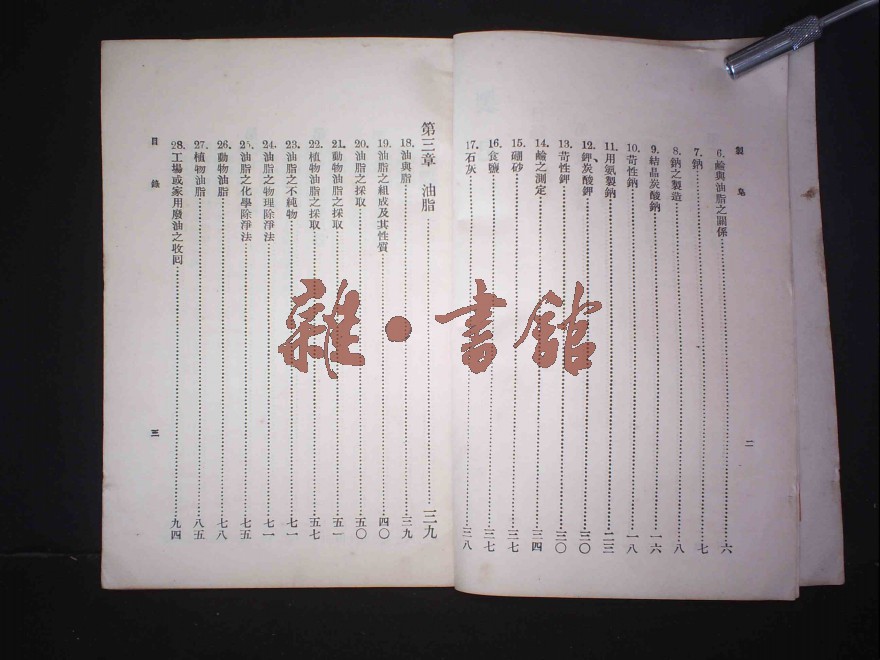 製皂
6. 鹼與油脂之關係……六
7. 鈉……七
8. 鈉之製造……八
9. 結晶炭酸鈉……一六
10. 苛性鈉……一八
11. 用氨製鈉……二三
12. 鉀、炭酸鉀……三〇
13. 苛性鉀……三〇
14. 鹼之測定……三四
15. 硼砂……三七
16. 食鹽……三七
17. 石灰……三八
二
第三章 油脂……三九
18. 油與脂……三九
19. 油脂之組成及其性質……四〇
20. 油脂之採取……五〇
21. 動物油脂之採取……五一
22. 植物油脂之採取……五七
23. 油脂之不純物……七一
24. 油脂之物理除淨法……七一
25. 油脂之化學除淨法……七五
26. 動物油脂……七八
27. 植物油脂……八五
28. 工場或家用廢油之收回……九四
目錄
三
雜·書館